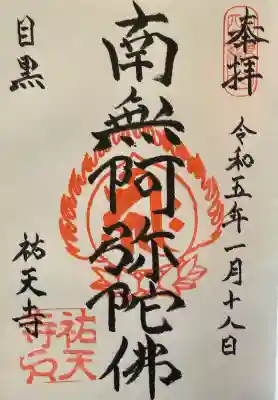 奉拝
令和五年一月十八日
南無阿弥陀佛
目黒
祐天寺
祐天寺